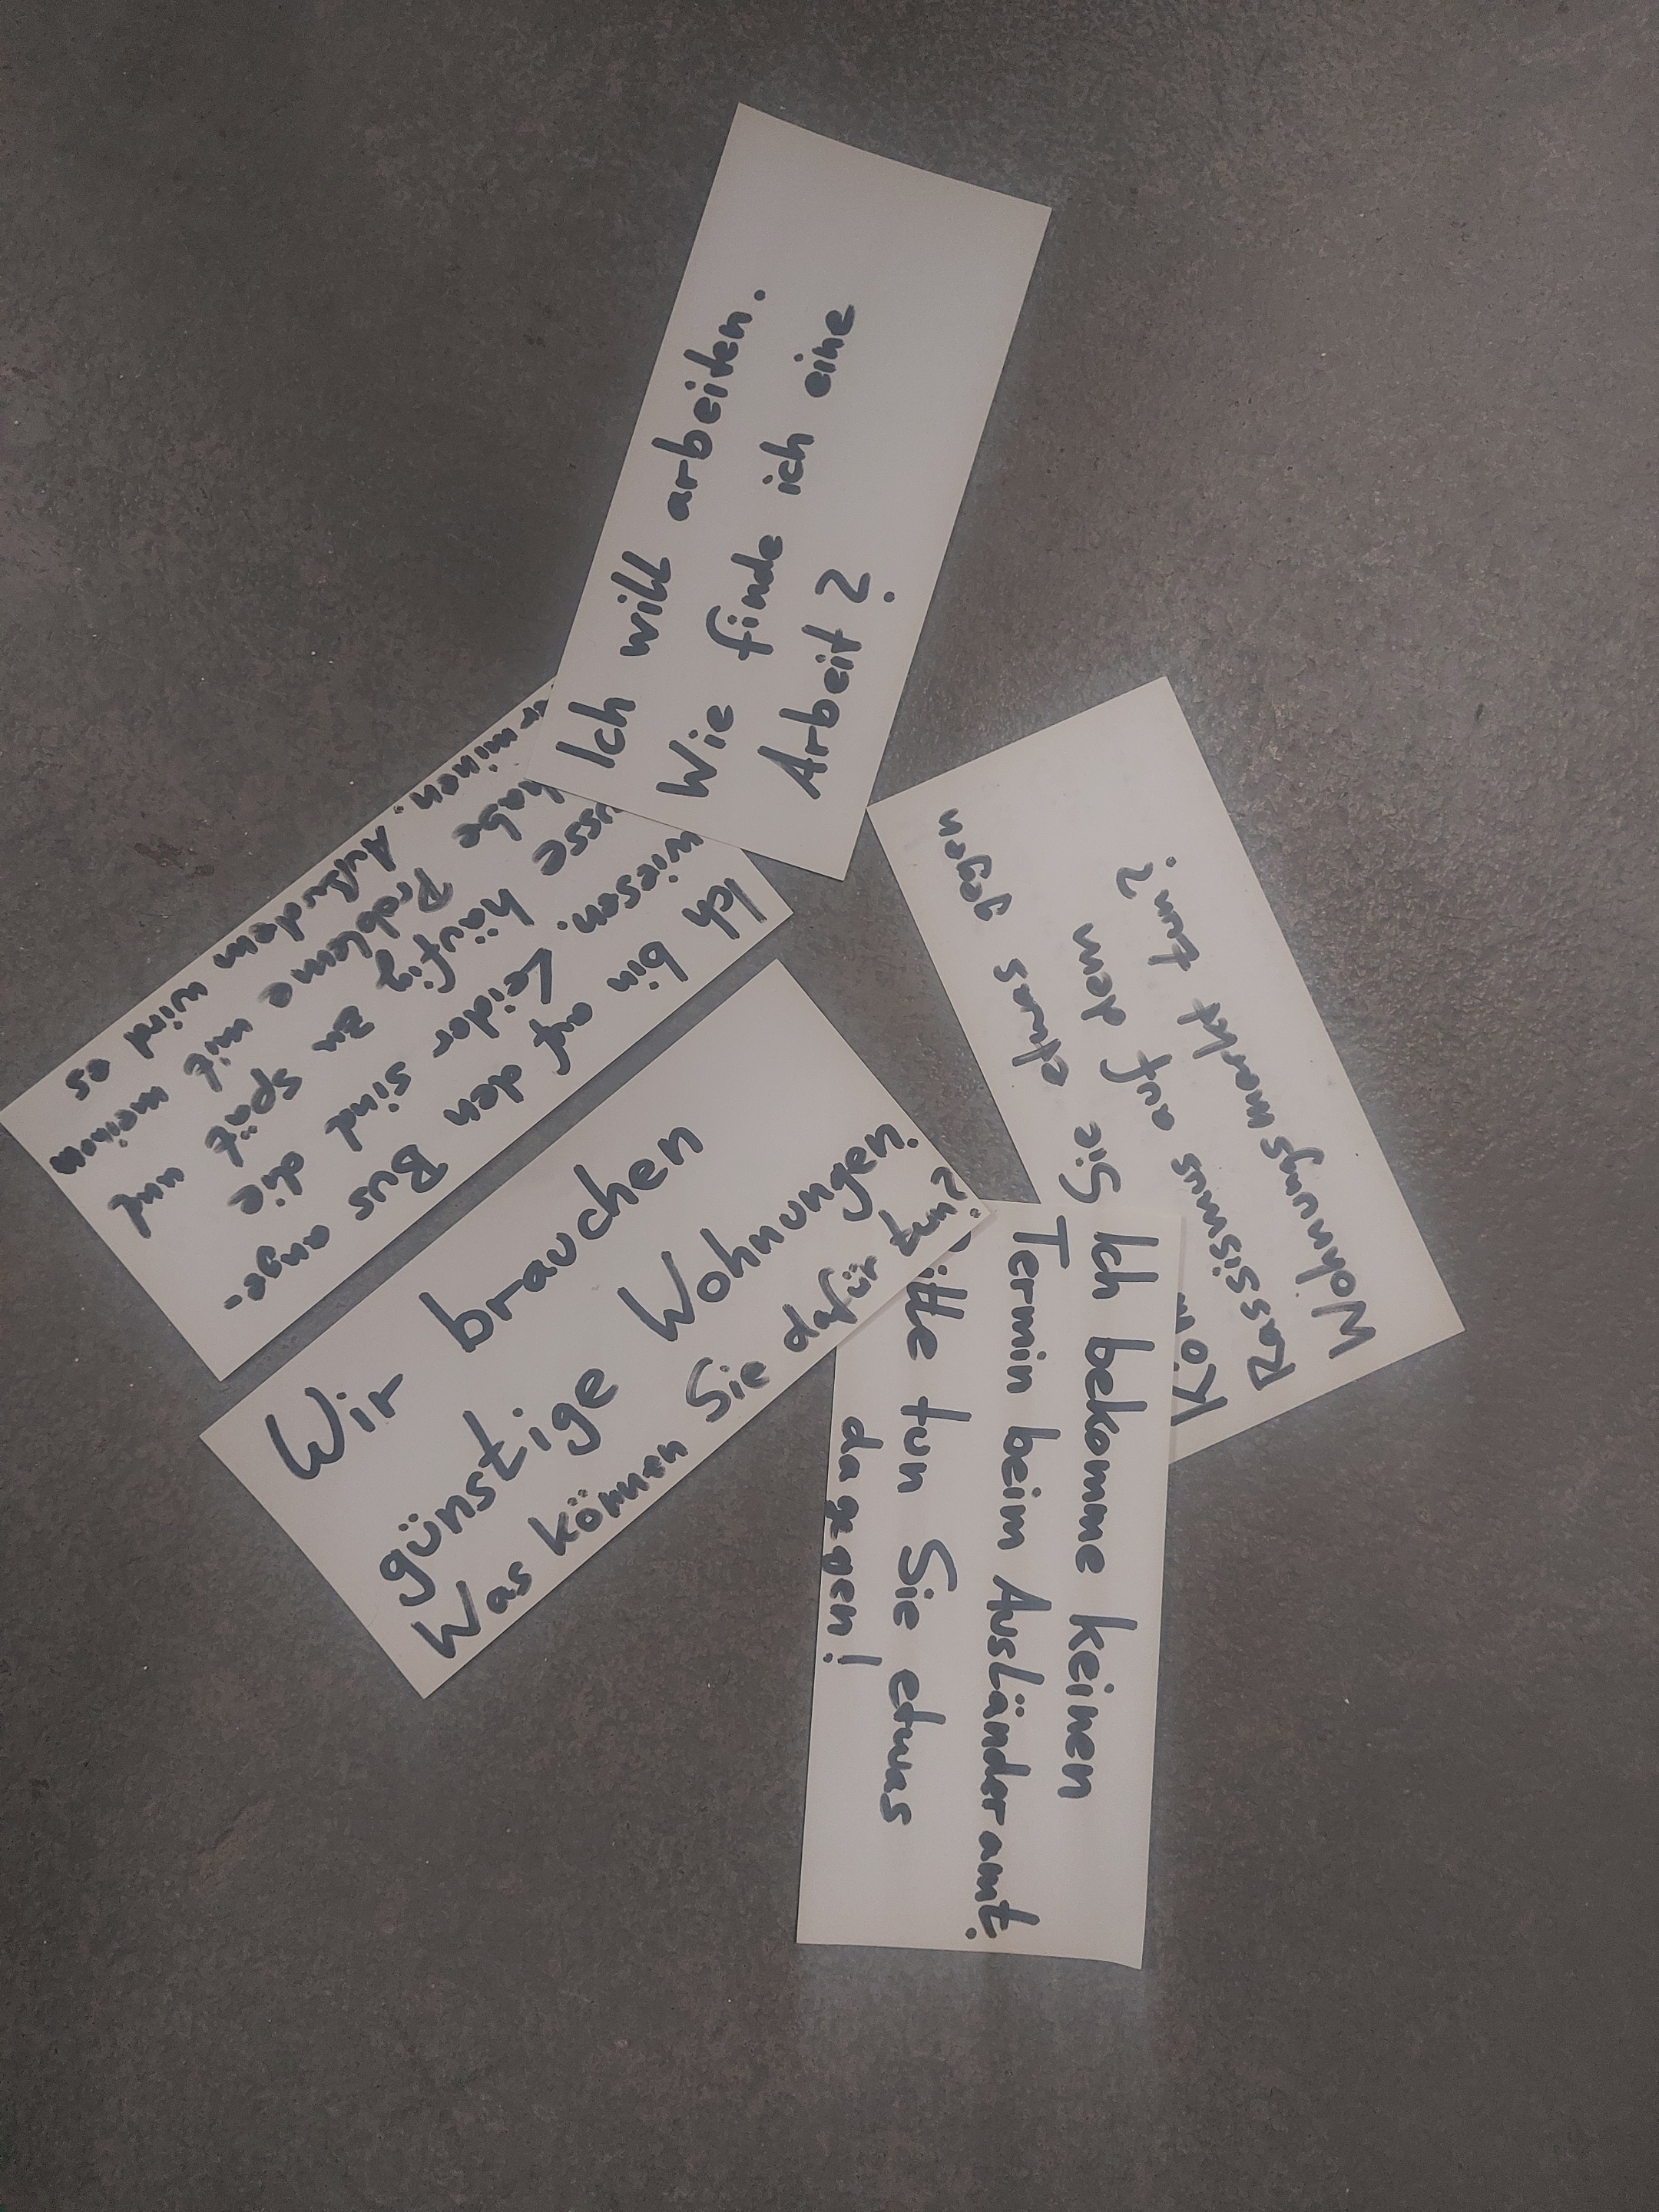 Ich will arbeiten.
Wie finde ich eine
Arbeit?
Ich bin auf den Bus ange-
wiesen. Leider sind die
häufig zu spät und
habe Probleme mit meinen
minen. Außerdem wird es
Wir brauchen
günstige Wohnungen.
Was können Sie dafür tun?
Ich bekomme keinen
Termin beim Ausländeramt.
tun Sie etwas
dagegen!
Sie etwas gegen
Rassismus auf dem
Wohnungsmarkt tun?